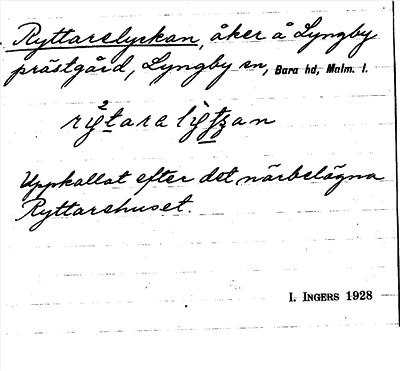 Ryttarelyckan, åker å Lyngby
prästgård, Lyngby sn, Bara hd, Malm. l.
Uppkallat efter det närbelägna
Ryttarehuset.
I. INGERS 1928